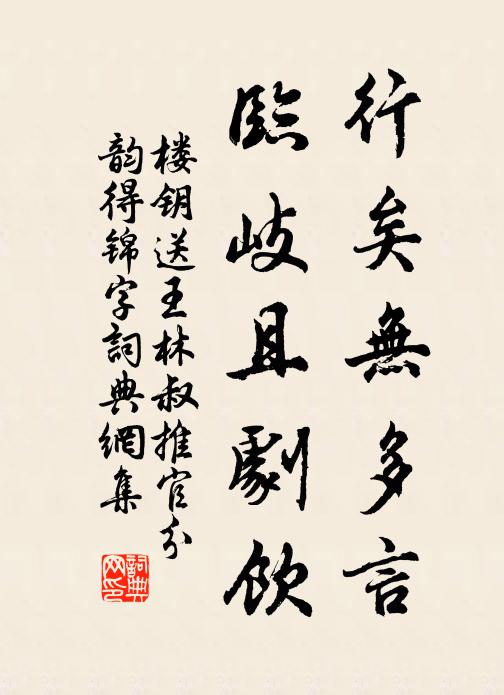 行矣無多言
臨歧且劇飲
楼钥送王林叔推官分
韵得锦字詞典網集
詞典
网印